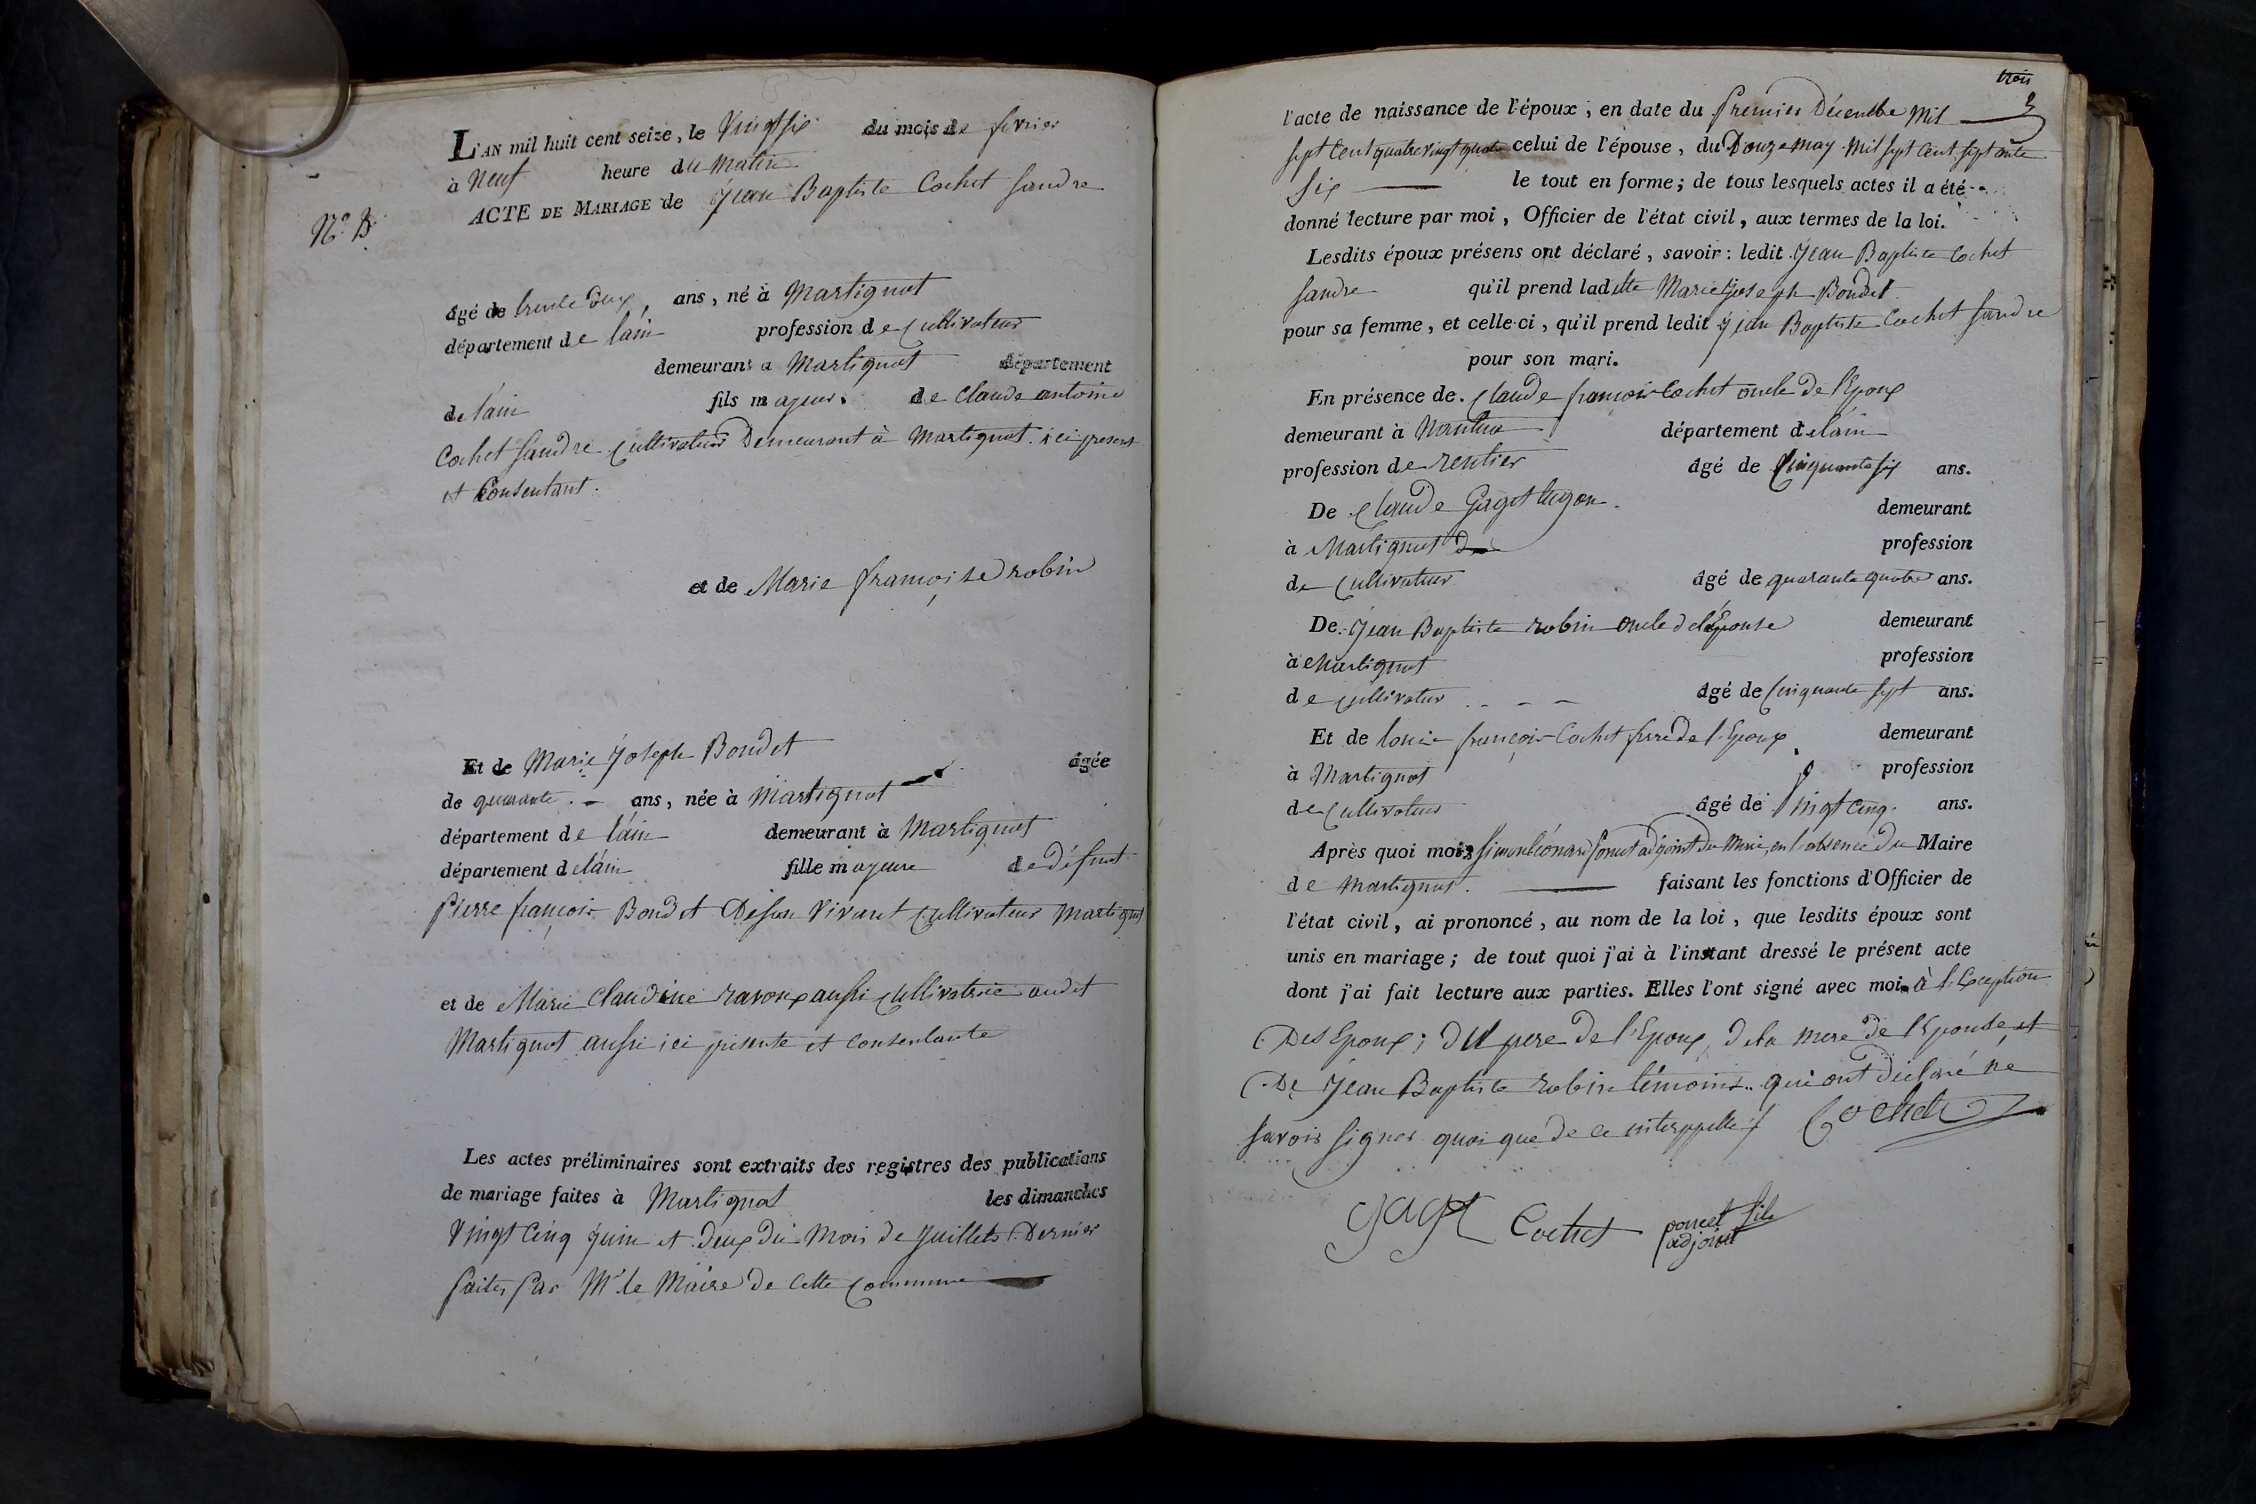 L'AN mil huit cent seize, le Vingt six du mois de fevrier
à Neuf heure du Matin
ACTE DE MARIAGE de Jean Baptiste Cochet Sandre
N.º
âgé de trente deux, ans, né à Martignat
département de lain profession de Cultivateur
demeurant a Martignat département
de lain fils majeur de Claude antoine
Cochet Sandre Cultivateur Demeurant à Martignat ici present
et Consentant.
et de Marie françoise robin
Et de Marie Joseph Boudet âgée
de quarante ans, née à Martignat
département de lain demeurant à Martignat
département de lain fille majeure de défunt
Pierre françois Boudet De son Vivant Cultivateur Martignat
et de Marie Claudine ravoux aussi Cultivatrice audit
Martignat aussi ici presente et Consentante
Les actes préliminaires sont extraits des registres des publications
de mariage faites à Martignat les dimanches
Vingt Cinq Juin et deux du Mois de Juillets Dernier
faites Par Mr le Maire de Cette Commune
trois
3
l'acte de naissance de l'époux, en date du Premier Décembre Mil
sept Cent quatre vingt quatre celui de l'épouse, du Douze may Mil sept Cent septante
Six le tout en forme; de tous lesquels actes il a été
donné lecture par moi, Officier de l'état civil, aux termes de la loi.
Lesdits époux présens ont déclaré, savoir: ledit Jean Baptiste Cochet
Sandre qu'il prend ladette Marie Joseph Boudet
pour sa femme, et celle-ci, qu'il prend ledit Jean Baptiste Cochet Sandre
pour son mari.
En présence de Claude françois Cochet oncle de l'Epoux
demeurant à Nantua département de lain
profession de rentier âgé de Cinquante six ans.
De Claude Gaget demeurant
à Martignat profession
de Cultivateur âgé de quarante quatre ans.
De Jean Baptiste robin oncle de l'Épouse demeurant
à Martignat profession
de Cultivateur âgé de Cinquante sept ans.
Et de louis françois Cochet frere de l'Epoux demeurant
à Martignat profession
de Cultivateur âgé de Vingt Cinq ans.
Après quoi moi Simon Léonard Poncet adjoint du Maire en l'absence du Maire
de Martignat. faisant les fonctions d'Officier de
l'état civil, ai prononcé, au nom de la loi, que lesdits époux sont
unis en mariage; de tout quoi j'ai à l'instant dressé le présent acte
dont j'ai fait lecture aux parties. Elles l'ont signé avec moi à l'Exception
Des Epoux; du pere de l'Epoux, de la mere de l'Epouse et
De Jean Baptiste robin témoins qui ont déclaré ne
savoir signer quoique de ce interppellés Cochet
Gaget Cochet poncet fils
adjoint